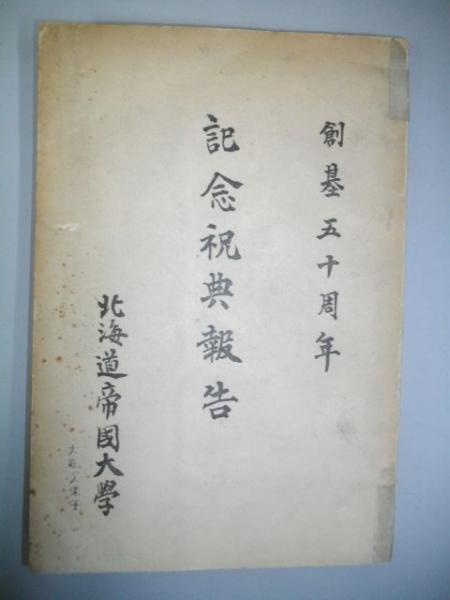 創基五十周年
記念祝典報告
北海道帝國大學